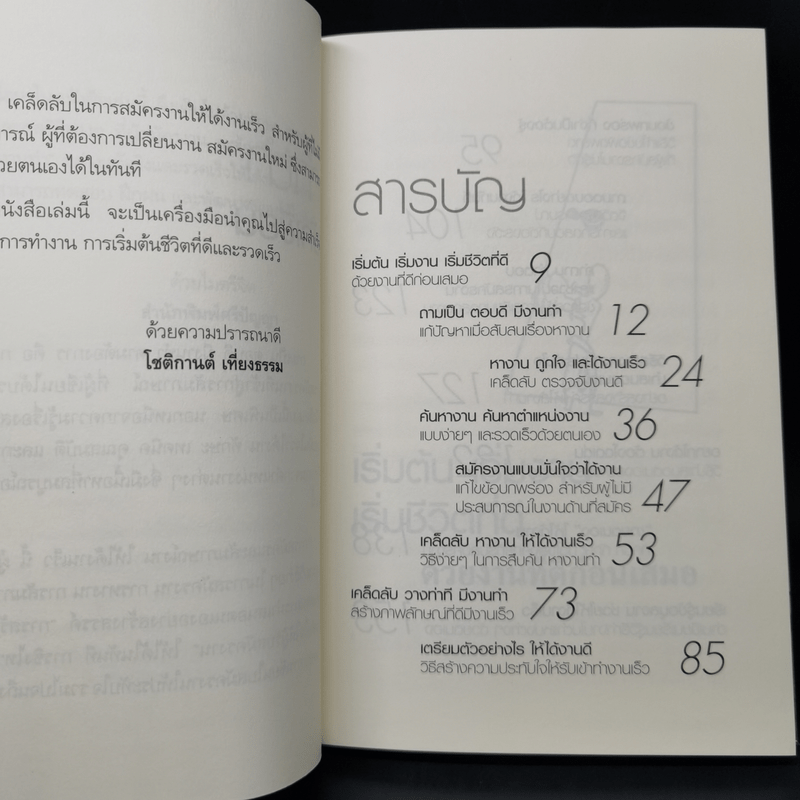 เคล็ดลับในการสมัครงานให้ได้งานเร็ว สำหรับผู้ที่
ผู้ที่ต้องการเปลี่ยนงาน สมัครงานใหม่
ตนเองได้ในทันที
นังสือเล่มนี้ จะเป็นเครื่องมือนำคุณไปสู่ความสำเร็จ
การทำงาน การเริ่มต้นชีวิตที่ดีและรวดเร็ว
ด้วยความปรารถนาดี
โชติกานต์ เที่ยงธรรม
สารบัญ
เริ่มต้น เริ่มงาน เริ่มชีวิตที่ดี 9
ด้วยงานที่ดีก่อนเสมอ
ถามเป็น ตอบดี มีงานทำ 12
แก้ปัญหาเมื่อสับสนเรื่องหางาน
หางาน ถูกใจ และได้งานเร็ว 24
เคล็ดลับ ตรวจจับงานดี
ค้นหางาน ค้นหาตำแหน่งงาน 36
แบบง่ายๆ และรวดเร็วด้วยตนเอง
สมัครงานแบบมั่นใจว่าได้งาน
แก้ไขข้อบกพร่อง สำหรับผู้ไม่มี 47
ประสบการณ์ในงานด้านที่สมัคร
เคล็ดลับ หางาน ให้ได้งานเร็ว 53
วิธีง่ายๆ ในการสืบค้น หางานทำ
เคล็ดลับ วางท่าที มีงานทำ 73
สร้างภาพลักษณ์ที่ดีมีงานเร็ว
เตรียมตัวอย่างไร ให้ได้งานดี 85
วิธีสร้างความประทับใจให้รับเข้าทำงานเร็ว